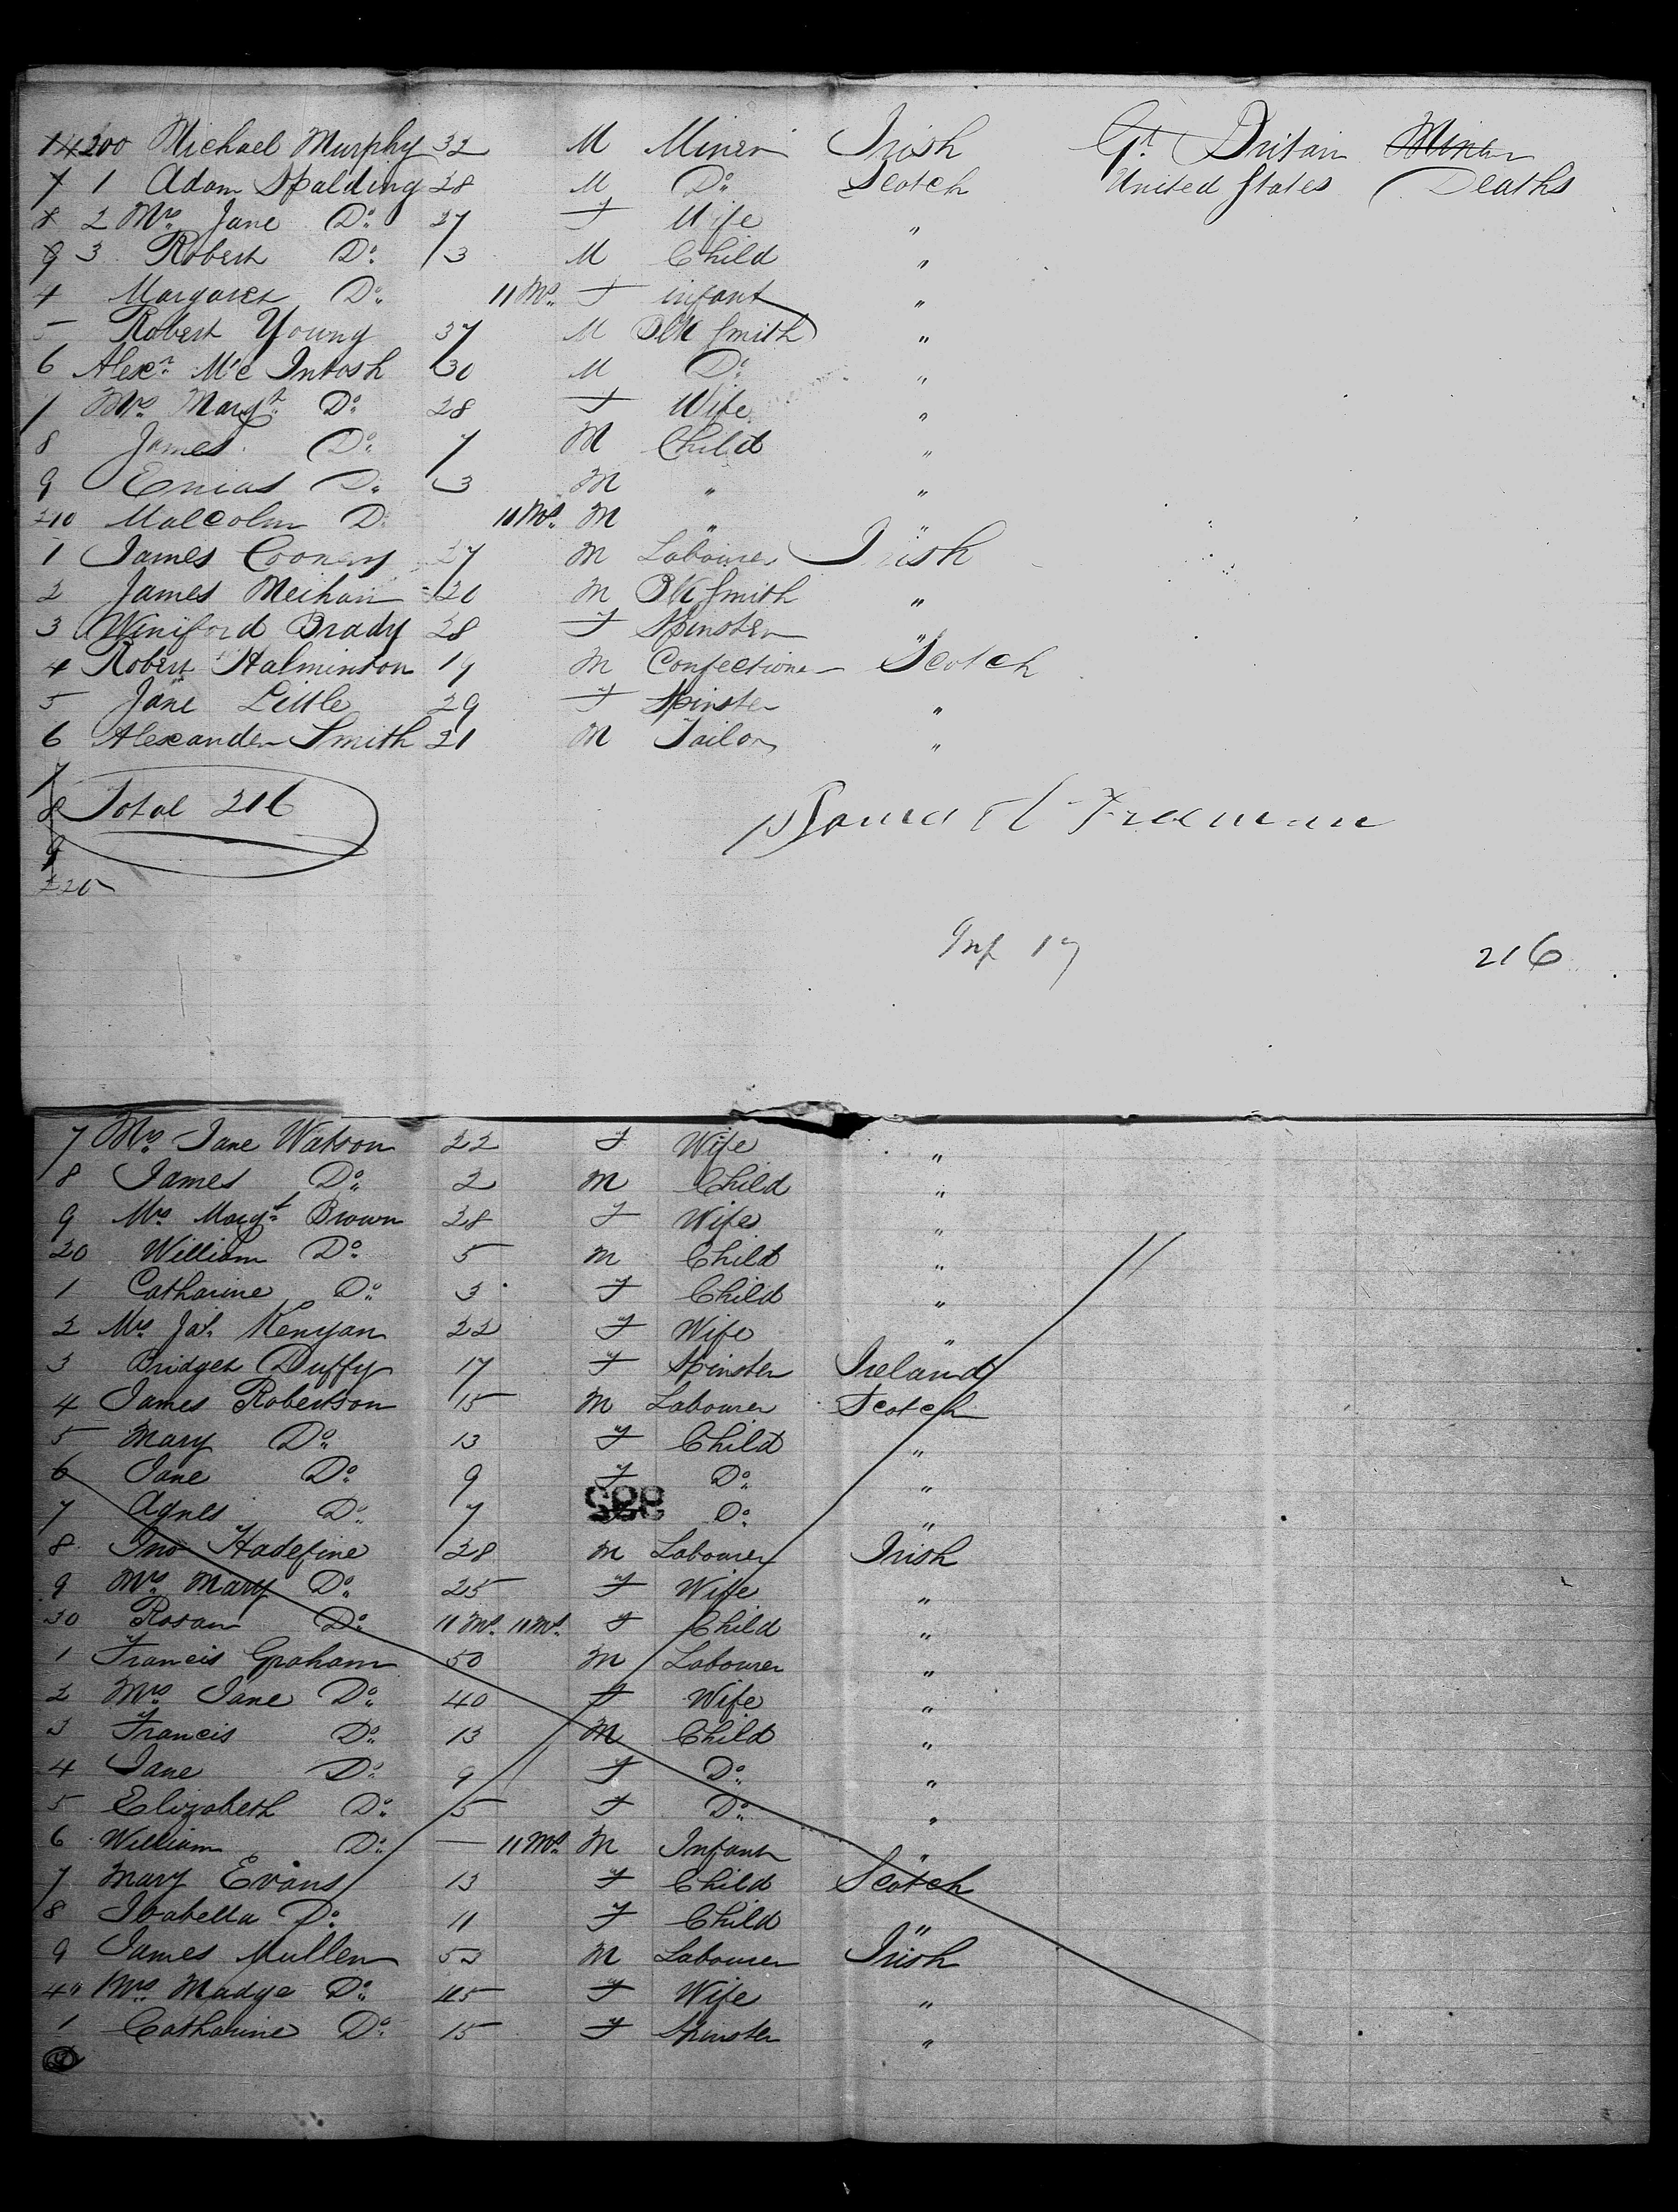 200 Michael Murphy 32 M Miner Irish Gt. Britain Miner
1 Adam Spalding 28 M Do. Scotch United States Deaths
2 Mrs. Jane Do. 27 F Wife "
3 Robert Do. 3 M Child "
4 Margaret Do. 11 Mos. F infant "
5 Robert Young 37 M Blk Smith "
6 Alexr. Mc Intosh 30 M Do. "
7 Mrs. Margt. Do. 28 F Wife "
8 James Do. 7 M Child "
9 Enias Do. 3 M " "
210 Malcolm Do. 11 Mos. M " "
1 James Cooney 27 M Labourer Irish
2 James Meihan 20 M Blk Smith "
3 Winiford Brady 28 F Spinster "
4 Robert 19 M Confectioner Scotch
5 Jane Little 29 F Spinster "
6 Alexander Smith 21 M Tailor "
7
8 Total 216
9
220
Freeman
Inf 17 216
7 Mrs. Jane Watson 22 F Wife "
8 James Do. 2 M Child "
9 Mrs. Margt. Brown 28 F Wife "
20 William Do. 5 M Child "
1 Catharine Do. 3 F Child "
2 Mrs. Jas. Kenyan 22 F Wife "
3 Bridget Duffy 17 F Spinster Ireland
4 James Robertson 15 M Labourer Scotch
5 Mary Do. 13 F Child "
6 Jane Do. 9 F Do. "
7 Agnes Do. 7 Do. "
8 Jno Hadefine 28 M Labourer Irish
9 Mrs. Mary Do. 25 F Wife "
30 Rosan Do. 11 Mos. 11 Mos. F Child "
1 Francis Graham 50 M Labourer "
2 Mrs. Jane Do. 40 F Wife "
3 Francis Do. 13 M Child "
4 Jane Do. 9 F Do. "
5 Elizabeth Do. 5 F Do. "
6 William Do. — 11 Mos. M Infant "
7 Mary Evans 13 F Child Scotch
8 Isabella Do. 11 F Child "
9 James Mullen 53 M Labourer Irish
40 Mrs. Madge Do. 45 F Wife "
1 Catharine Do. 15 F Spinster "